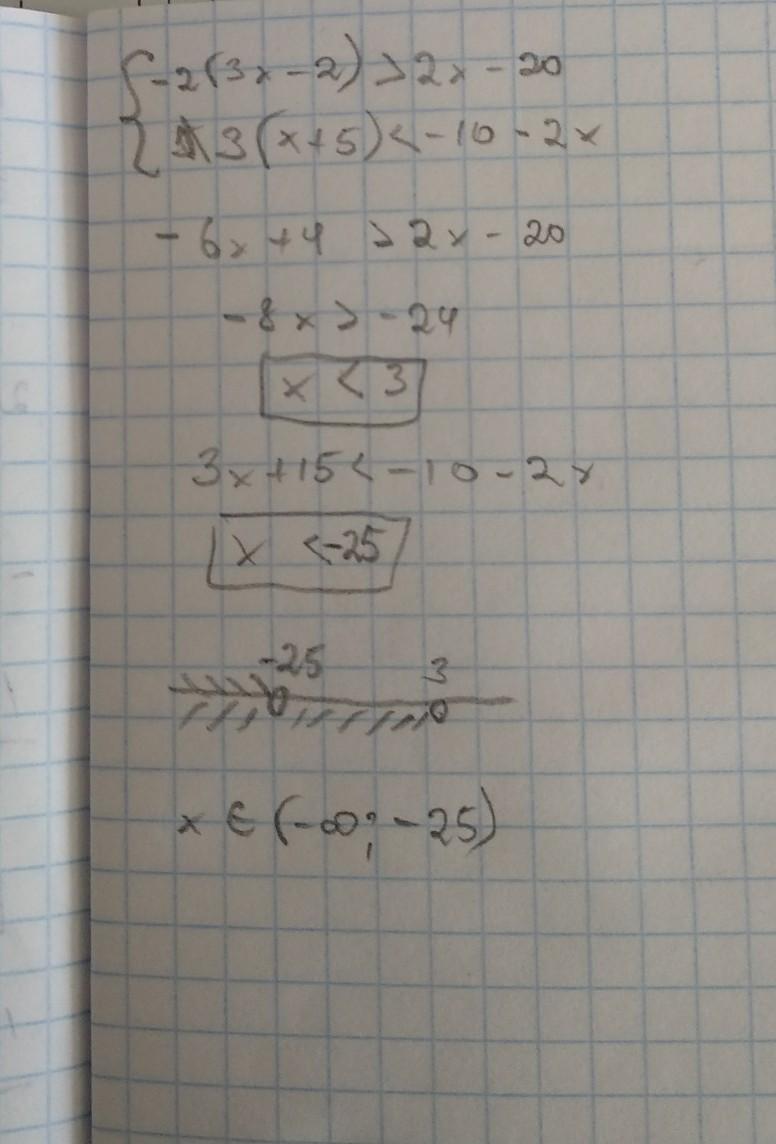 { -2(3x-2) > 2x - 20
3(x+5) < -10 - 2x
-6x +4 > 2x - 20
-8x > -24
x < 3
3x +15 < -10 - 2x
x < -25
-25 3
x ∈ (-∞; -25)